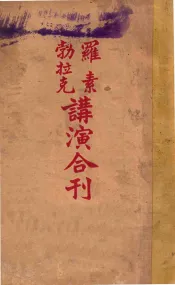 羅素
勃拉克
講演合刊